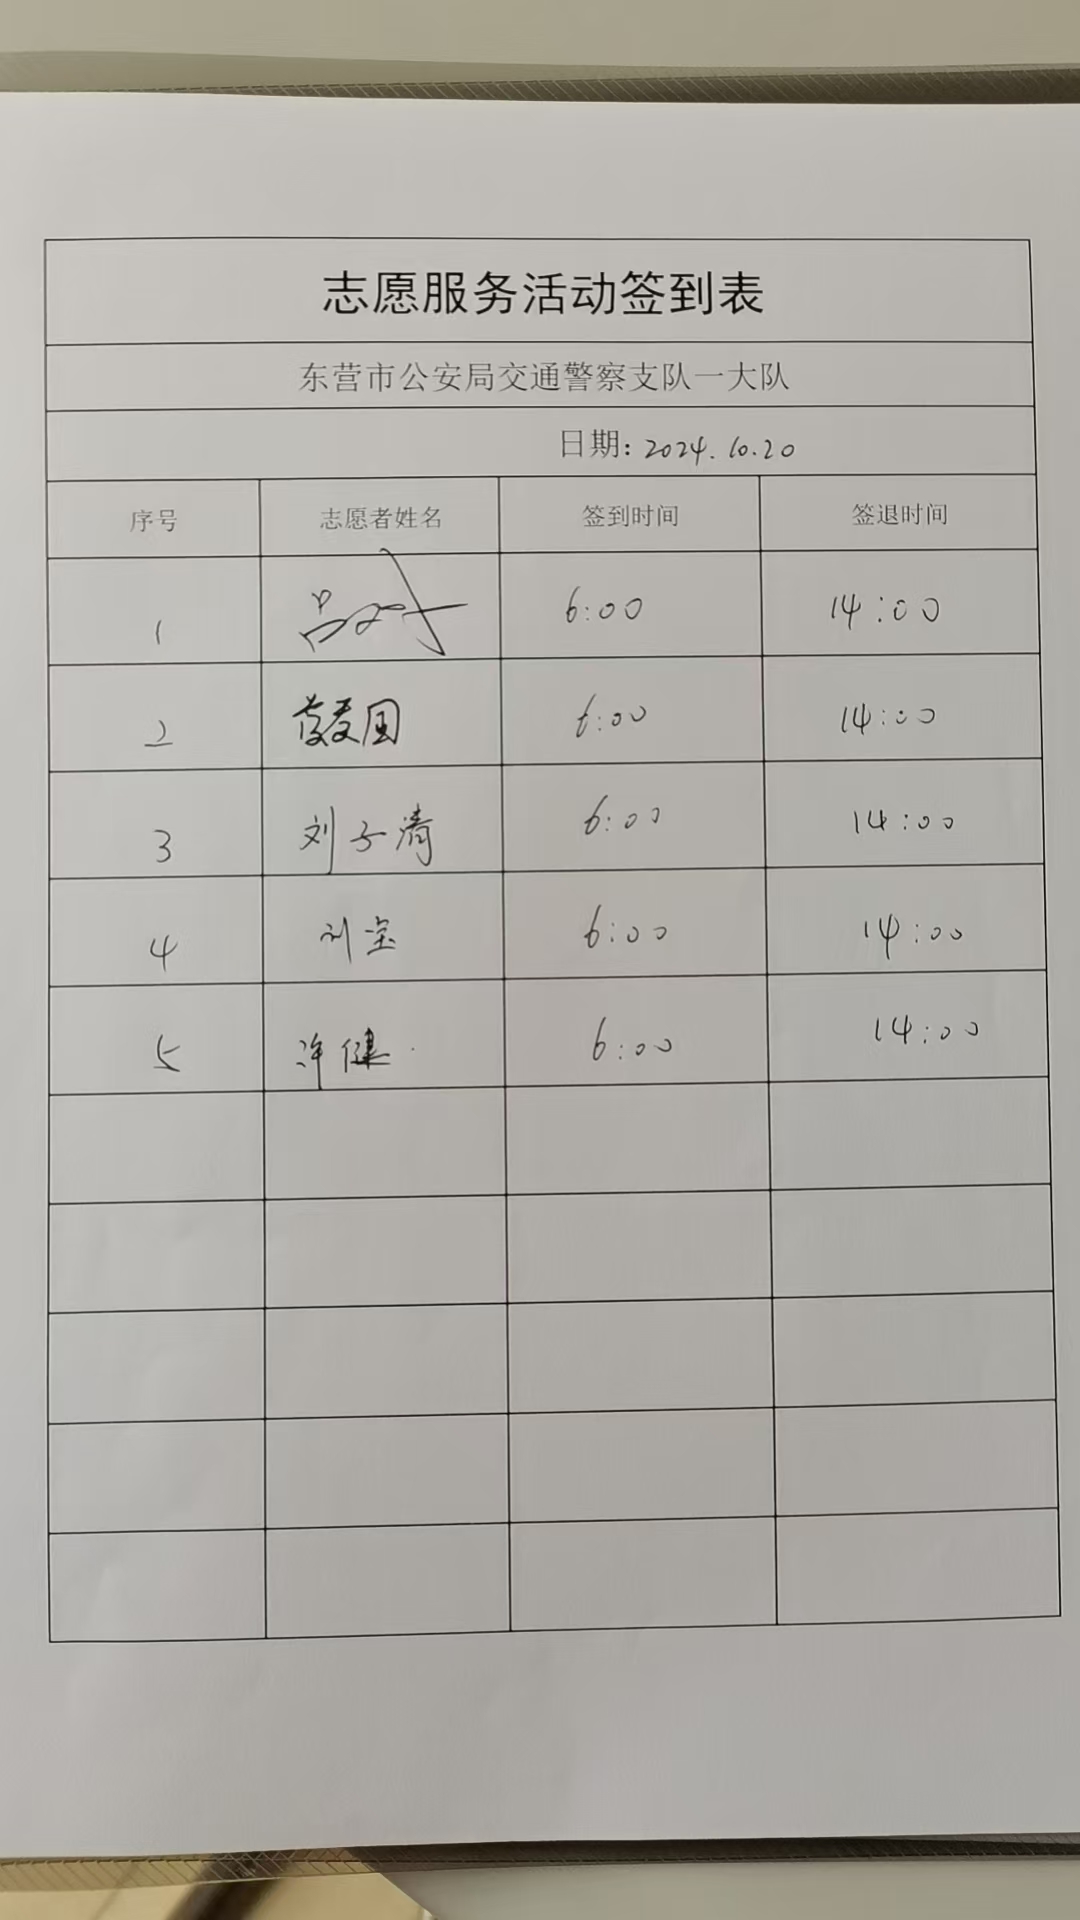 志愿服务活动签到表
东营市公安局交通警察支队一大队
日期: 2024.10.20
序号 志愿者姓名 签到时间 签退时间
1 吕 6:00 14:00
2 国 6:00 14:00
3 刘子清 6:00 14:00
4 刘宝 6:00 14:00
5 许健 6:00 14:00